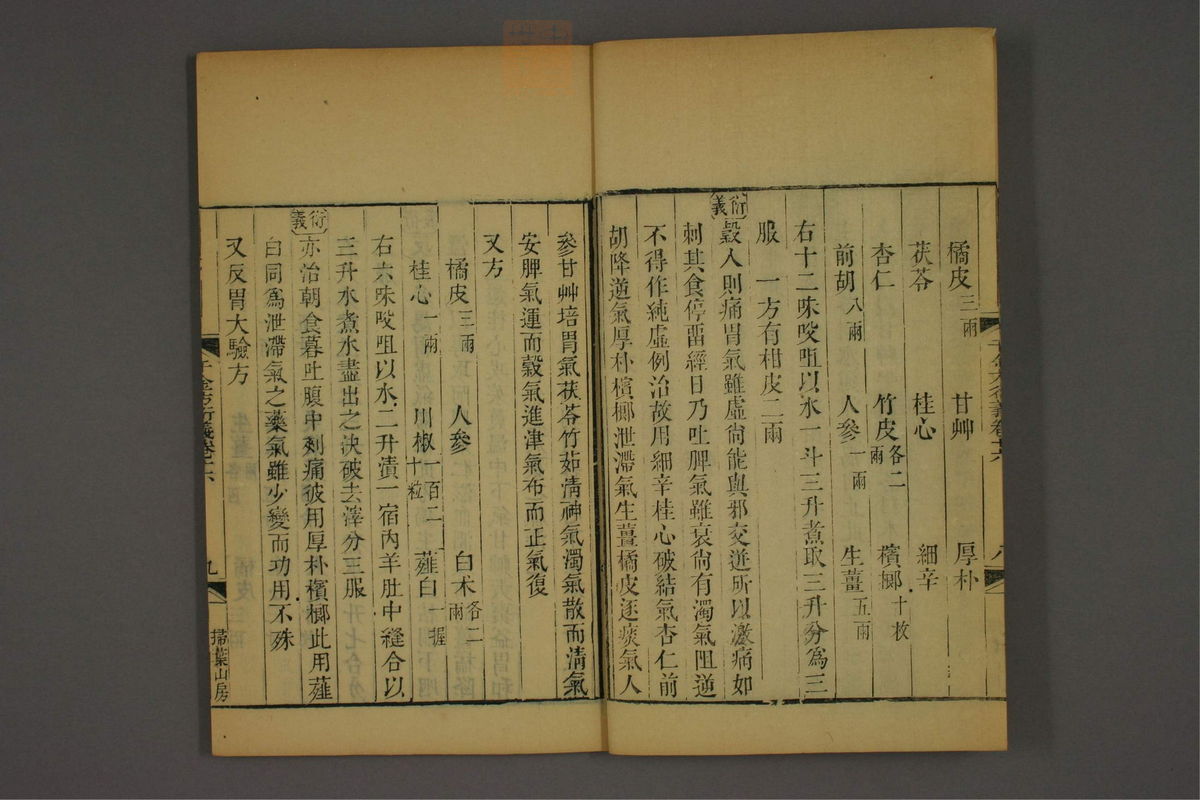 橘皮三兩 甘艸 厚朴
茯苓 桂心 細辛
杏仁 竹皮各二兩 檳榔十枚
前胡八兩 人參一兩 生薑五兩
右十二味㕮咀以水一斗三升煮取三升分爲三
服 一方有柑皮二兩
衍義 穀入則痛胃氣雖虛尙能與邪交迸所以激痛如
刺其食停畱經日乃吐脾氣雖衰尙有濁氣阻逆
不得作純虛例治故用細辛桂心破結氣杏仁前
胡降逆氣厚朴檳榔泄滯氣生薑橘皮逐痰氣人
參甘艸培胃氣茯苓竹茹淸神氣濁氣散而淸氣
安脾氣運而穀氣進津氣布而正氣復
又方
橘皮三兩 人參 白朮各二兩
桂心一兩 川椒一百二十粒 薤白一握
右六味㕮咀以水二升漬一宿內羊肚中縫合以
三升水煮水盡出之決破去滓分三服
衍義 亦治朝食暮吐腹中刺痛彼用厚朴檳榔此用薤
白同爲泄滯氣之藥氣雖少變而功用不殊
又反胃大驗方
千金方衍義卷十六
九
掃葉山房